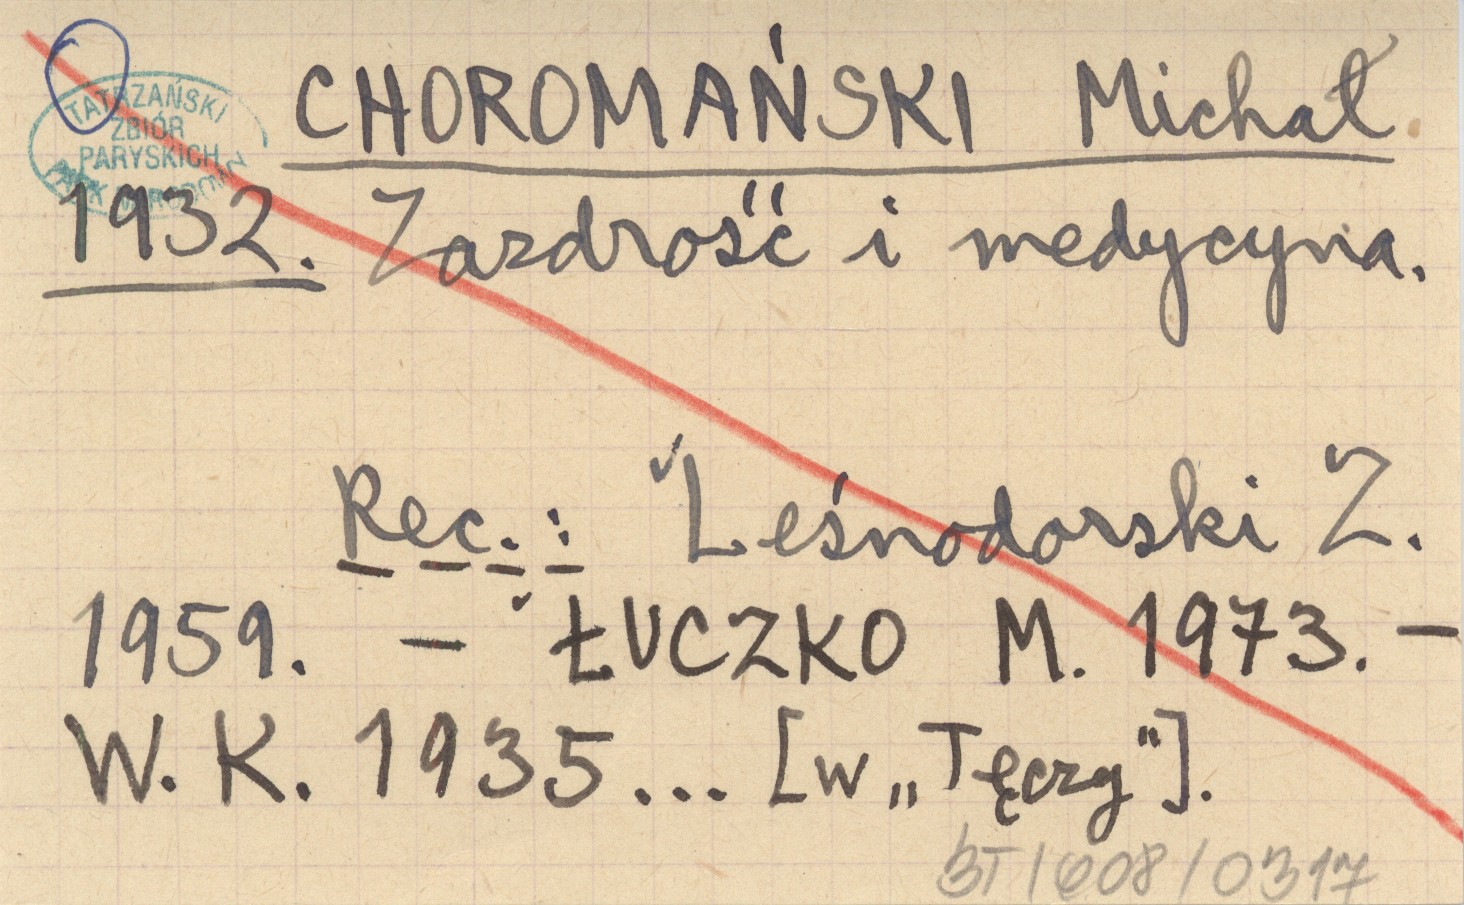 TATRZAŃSKI
ZBIÓR
PARYSKICH
CHOROMAŃSKI Michał
1932. Zazdrość i medycyna.
Rec.: Leśnodorski Z.
1959. – ŁUCZKO M. 1973. –
W. K. 1935... [w „Tęczy"].
BT/608/0317